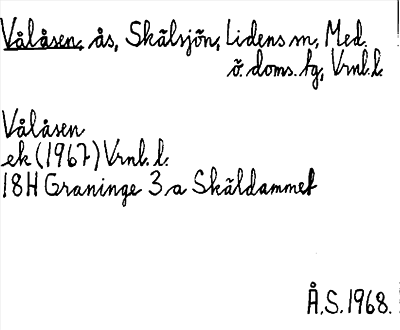 Vålåsen, ås, Skälsjön, Lidens sn, Med.
ö. doms. tg, Vrnl. l.
Vålåsen
ek (1967) Vrnl. l.
18H Graninge 3a Skäldammet
Å.S. 1968.